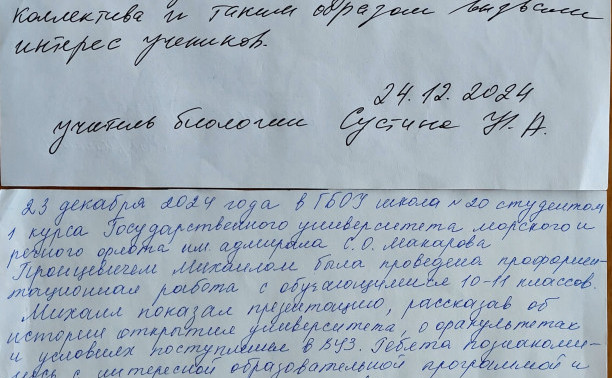 коллектива и таким образом вызвали
интерес учеников.
24.12.2024
учитель биологии Сустина Н.А.
23 декабря 2024 года в ГБОУ школа №20 студентом
1 курса Государственного университета морского и
речного флота им адмирала С.О. Макарова
Михаилом была проведена профориен-
тационная работа с обучающимися 10-11 классов.
Михаил показал презентацию, рассказав об
истории открытия университета, о факультетах
и условиях поступления в ВУЗ. Ребята познакоми-
лись с интересной образовательной программой и